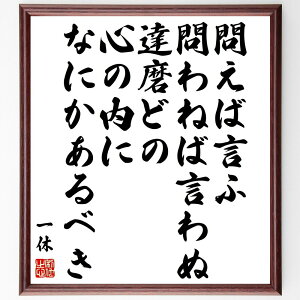 問えば言ふ
問わねば言わぬ
達磨どの
心の内に
なにかあるべき
一休